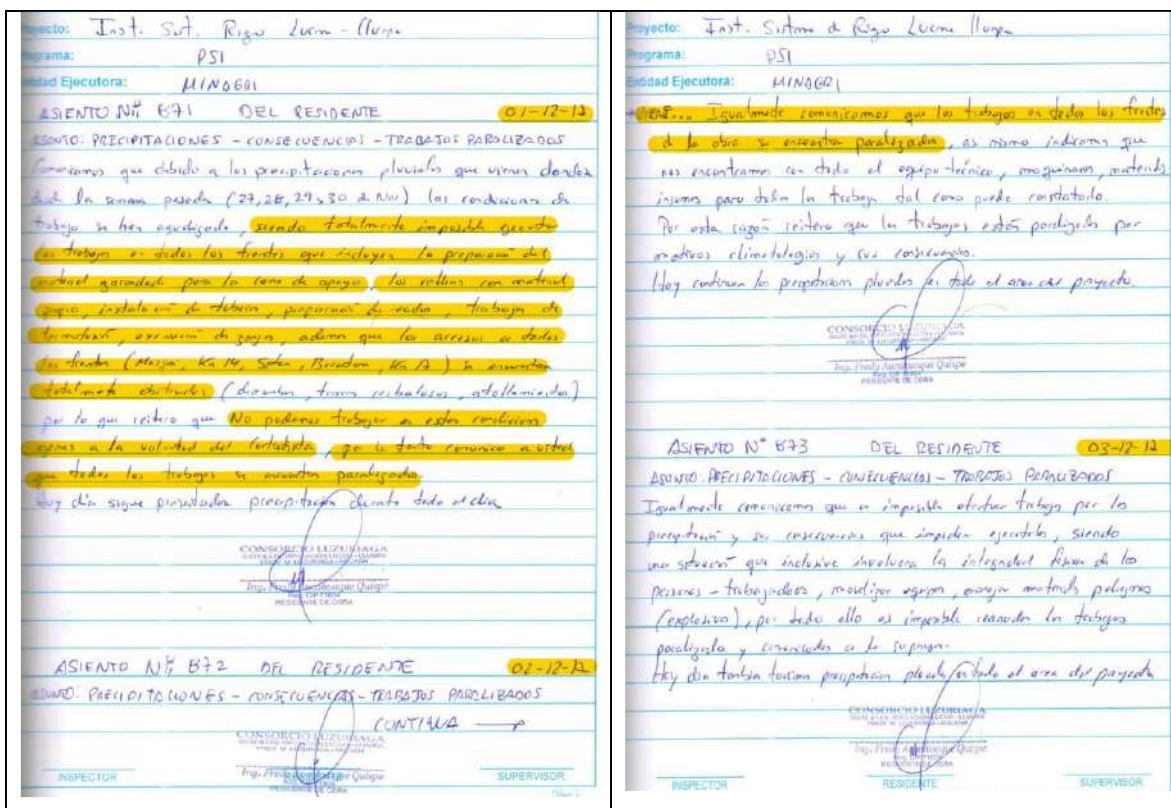 Proyecto: Inst. Sist. Riego Lucma - Llumpa
Programa: PSI
Entidad Ejecutora: MINAGRI
ASIENTO Nº 871 DEL RESIDENTE 01-12-12
ASUNTO: PRECIPITACIONES - CONSECUENCIAS - TRABAJOS PARALIZADOS
Comunicamos que debido a las precipitaciones pluviales que vienen dandose
desde la semana pasada (27, 28, 29 y 30 de Nov) las condiciones de
trabajo se han agudizado, siendo totalmente imposible ejecutar
los trabajos en todos los frentes que incluyen la preparacion del
material para la cama de apoyo, los rellenos con material
propio, instalación de tuberia, preparación de, trabajos de
excavación de zanja, ademas que los accesos a todos
los frentes (Km 14, Km A) se encuentran
totalmente obstruidos
por lo que reitero que No podemos trabajar en estas condiciones
ajenas a la voluntad del Contratista, por lo tanto comunico a usted
que todos los trabajos se encuentran paralizados.
Hoy dia sigue presentadose precipitacion durante todo el dia
CONSORCIO LUZURIAGA
Ing. Fredy Quispe
RESIDENTE DE OBRA
ASIENTO Nº 872 DEL RESIDENTE 02-12-12
ASUNTO: PRECIPITACIONES - CONSECUENCIAS - TRABAJOS PARALIZADOS
CONTINUA
CONSORCIO LUZURIAGA
Ing. Fredy Quispe
INSPECTOR SUPERVISOR
Proyecto: Inst. Sistema de Riego Lucma Llumpa
Programa: PSI
Entidad Ejecutora: MINAGRI
VIENE... Igualmente comunicamos que los trabajos en todos los frentes
de la obra se encuentran paralizados, asi mismo indicamos que
nos encontramos con todo el equipo técnico, maquinarias, materiales
insumos para todos los trabajos tal como puede constatarlo.
Por esta razón reitero que los trabajos están paralizados por
motivos climatologicos y sus consecuencias.
Hoy continuan las precipitaciones pluviales en toda el area del proyecto.
CONSORCIO LUZURIAGA
Ing. Fredy Quispe
RESIDENTE DE OBRA
ASIENTO Nº 873 DEL RESIDENTE 03-12-12
ASUNTO: PRECIPITACIONES - CONSECUENCIAS - TRABAJOS PARALIZADOS
Igualmente comunicamos que es imposible efectuar trabajos por las
precipitación y sus consecuencias que impiden ejecutarlos, siendo
una situación que inclusive involucra la integridad fisica de las
personas - trabajadores, movilizar equipos, manejar materiales peligrosos
(explosivo), por todo ello es imposible reanudar los trabajos
paralizados y comunicados a la supervision.
Hoy dia tambien tuvimos precipitacion pluvial en toda el area del proyecto
CONSORCIO LUZURIAGA
Ing. Fredy Quispe
RESIDENTE DE OBRA
INSPECTOR RESIDENTE SUPERVISOR